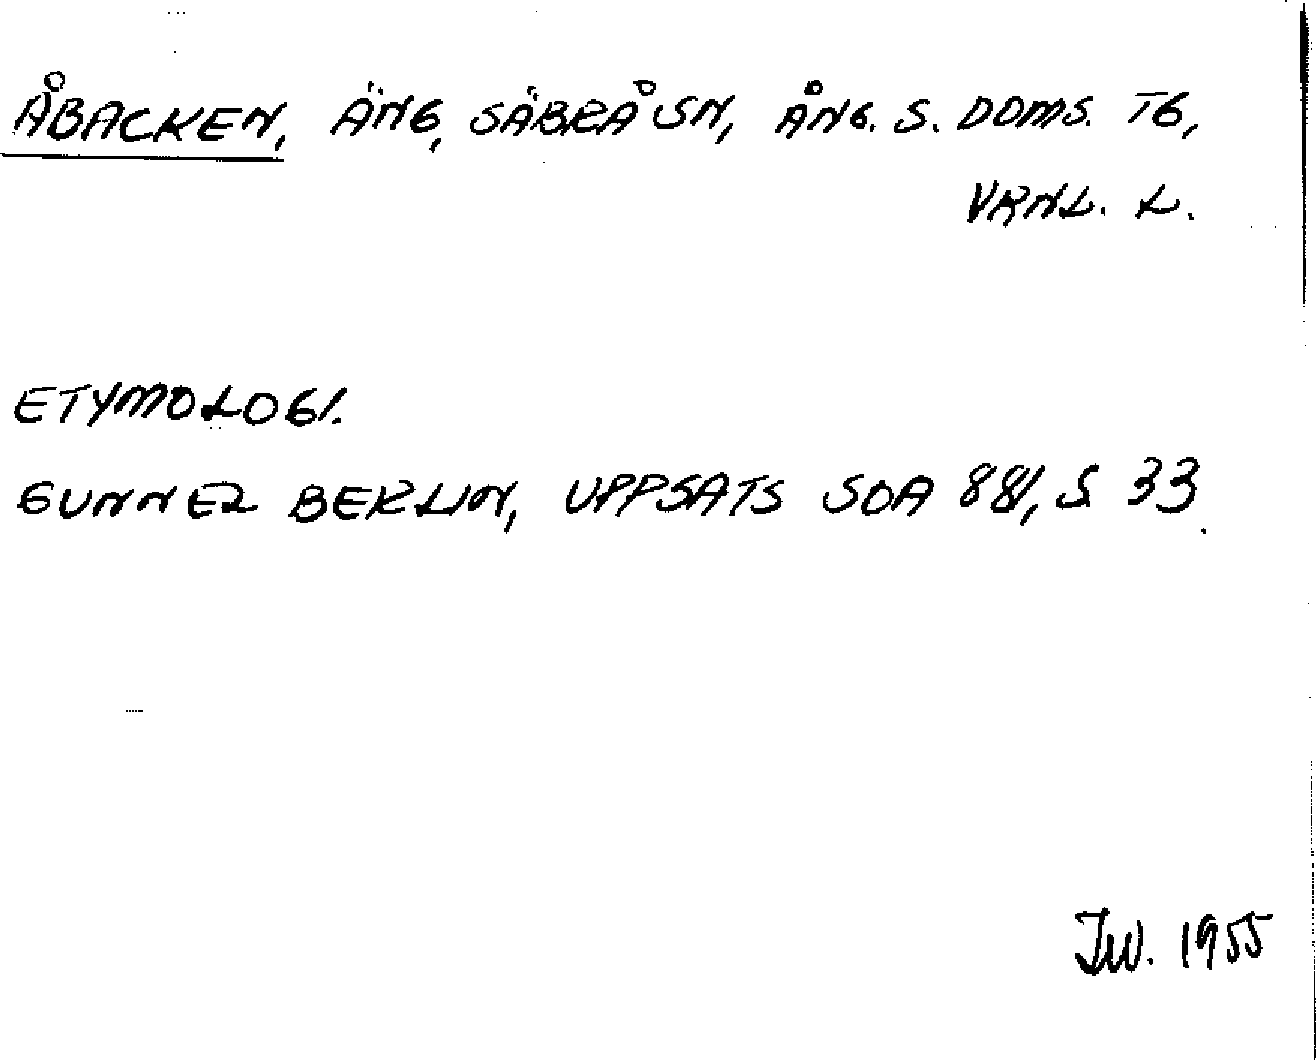 ÅBACKEN, ÄNG, SÄBRÅ SN, ÅNG. S. DOMS. TG,
VRNL. L.
ETYMOLOGI.
GUNNER BERLIN, UPPSATS SOA 881, S 33.
JW. 1955